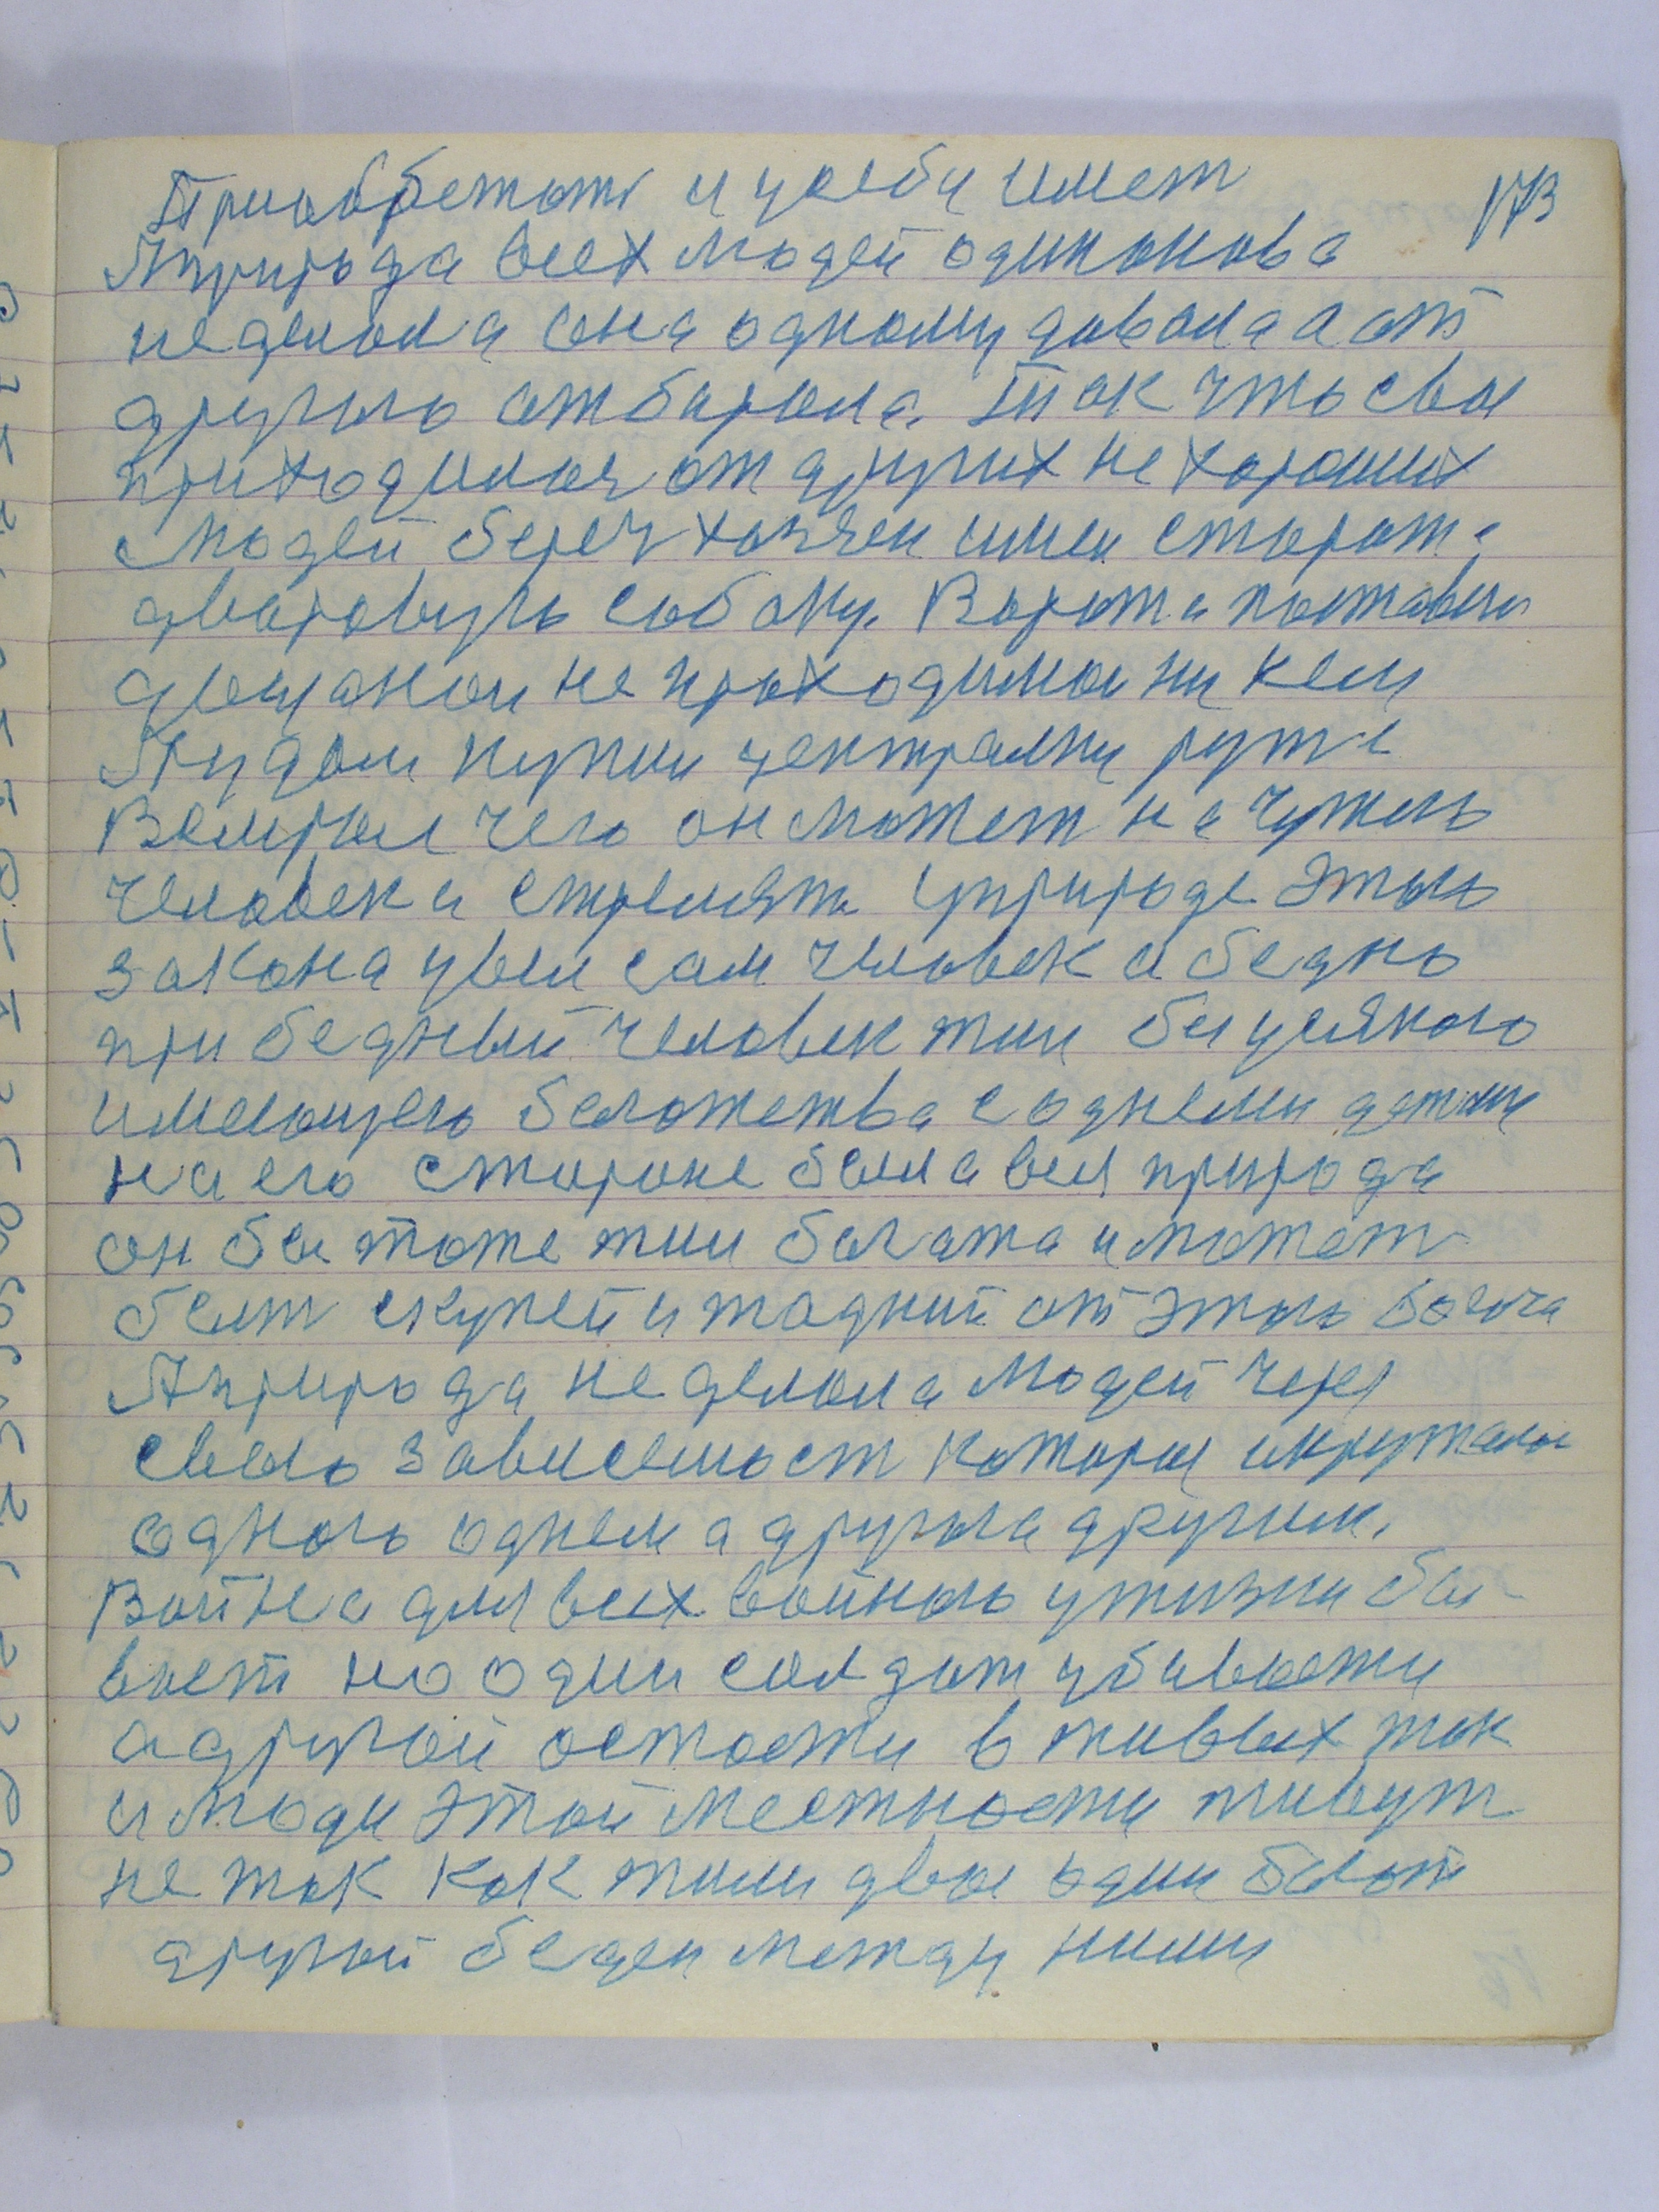 Приобретать и усеби имет 173
Априрода всех людей одинакова
неделила она одному давала а от
другого отбирала. Так что свое
приходилось от других не хороших
людей береч хозяен имел старожа
дваровую собаку. Ворота поставил
дощаные не проходимое ни кем
Ктудом купил централку ружье
Вемирое чего он может на чужого
человека стрелять уприроде этого
закона увел сам человек а бедно
при бедный человек жил бы усякого
имеющего богатства с однеми детями
на его стороне была вся природа
он бы тоже жил богато и может
быть скупей и жадний от этого богача
Априрода не делила людей через
свею зависемост которые окружало
одного однем а другога другим.
Война для всех войною ужизни бы-
вает но один солдат убивается
а другой остается в живых так
и люди этой местности живут
не так как жили двое один богат
другой беден между ними